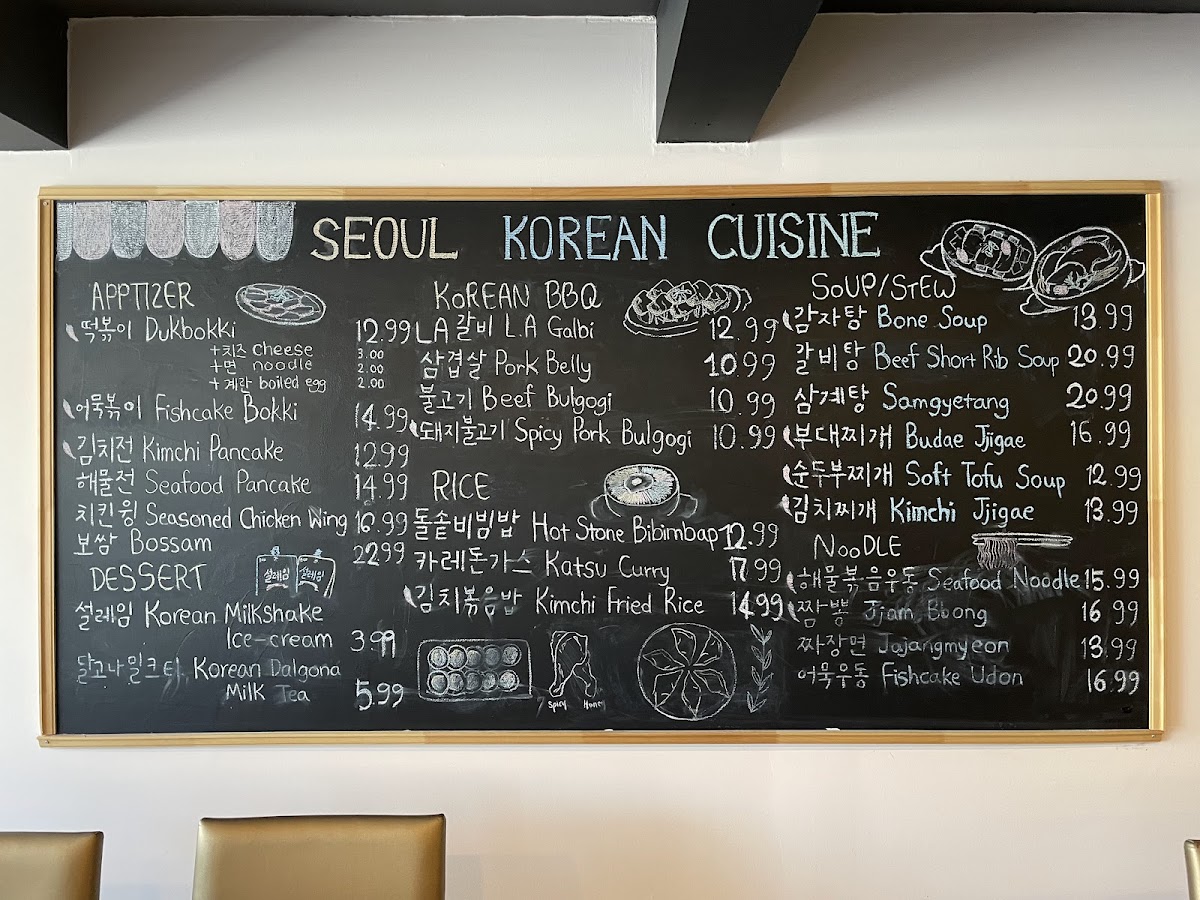 SEOUL KOREAN CUISINE
APPTIZER
떡볶이 Dukbokki 12.99
+치즈 cheese 3.00
+면 noodle 2.00
+계란 boiled egg 2.00
어묵볶이 Fishcake Bokki 14.99
김치전 Kimchi Pancake 12.99
해물전 Seafood Pancake 14.99
치킨윙 Seasoned Chicken Wing 16.99
보쌈 Bossam 22.99
DESSERT
설레임 설레임
설레임 Korean Milkshake
Ice-cream 3.99
달고나밀크티 Korean Dalgona
Milk Tea 5.99
KOREAN BBQ
LA갈비 L.A Galbi 12.99
삼겹살 Pork Belly 10.99
불고기 Beef Bulgogi 10.99
돼지불고기 Spicy Pork Bulgogi 10.99
RICE
돌솥비빔밥 Hot Stone Bibimbap 12.99
카레돈가스 Katsu Curry 17.99
김치볶음밥 Kimchi Fried Rice 14.99
Spicy Honey
SOUP/STEW
감자탕 Bone Soup 13.99
갈비탕 Beef Short Rib Soup 20.99
삼계탕 Samgyetang 20.99
부대찌개 Budae Jjigae 16.99
순두부찌개 Soft Tofu Soup 12.99
김치찌개 Kimchi Jjigae 13.99
NOODLE
해물볶음우동 Seafood Noodle 15.99
짬뽕 Jjam Bbong 16.99
짜장면 Jajangmyeon 13.99
어묵우동 Fishcake Udon 16.99